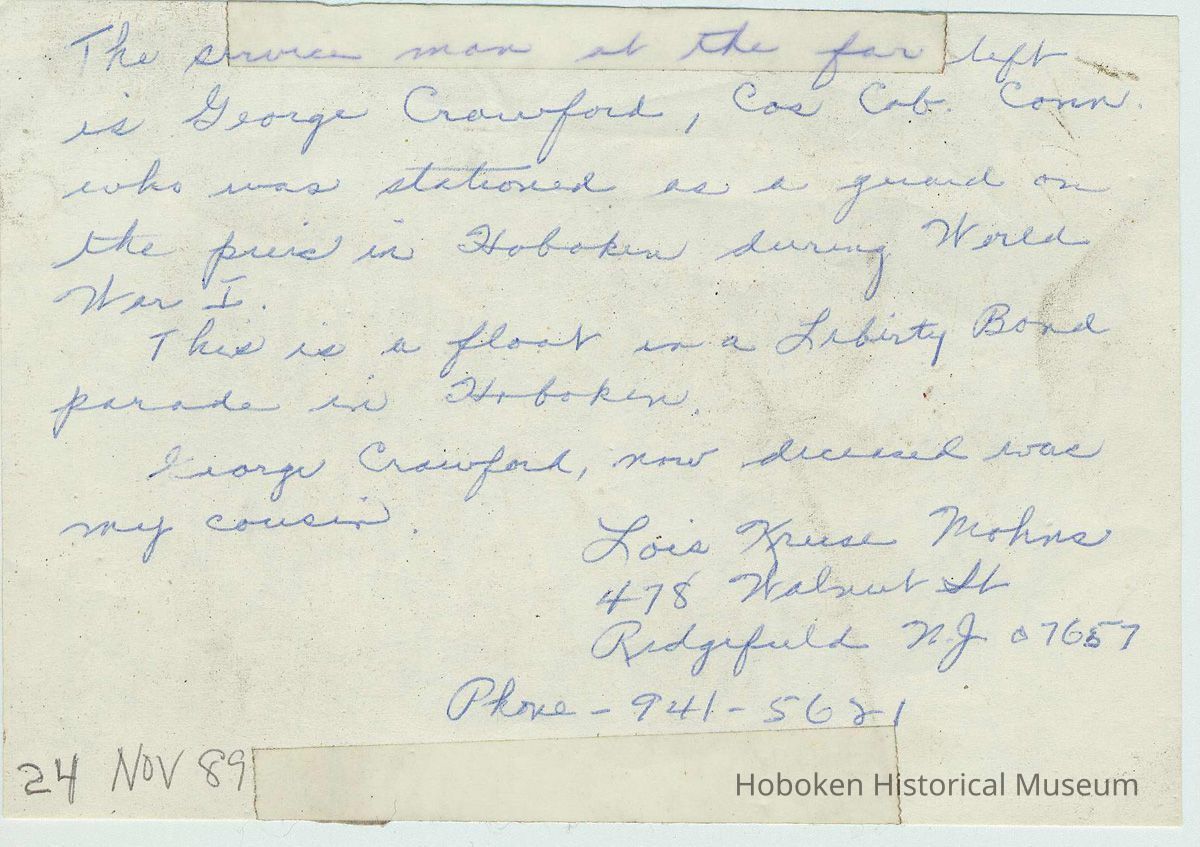 The service man at the far left
is George Crawford, Cos Cob. Conn.
who was stationed as a guard on
the piers in Hoboken during World
War I.
This is a float in a Liberty Bond
parade in Hoboken.
George Crawford, now deceased was
my cousin.
Lois Kruse Mohns
478 Walnut St
Ridgefield NJ 07657
Phone - 941 - 5621
24 NOV 89
Hoboken Historical Museum